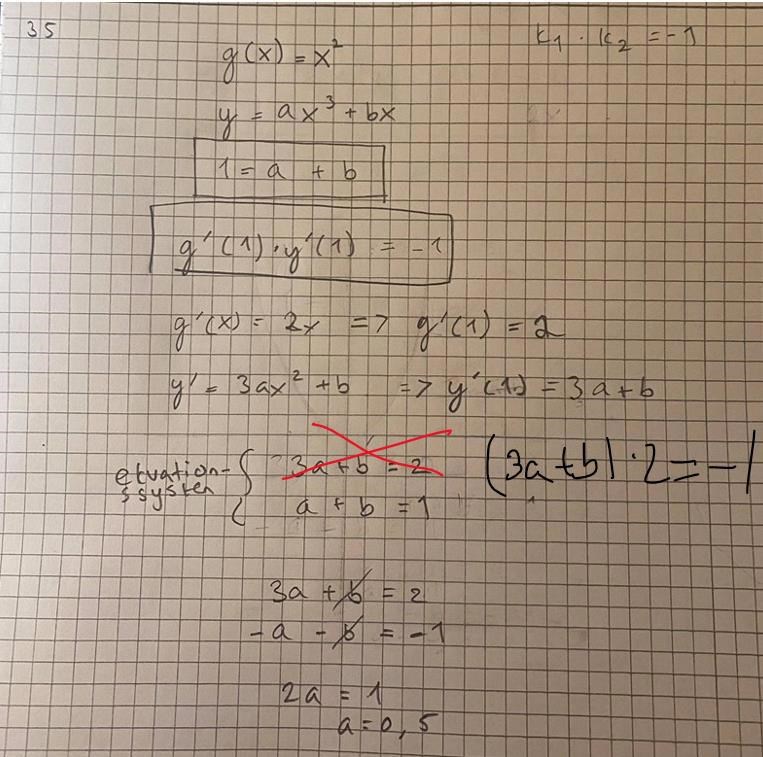 35
k₁ · k₂ = -1
g(x) = x²
y = ax³ + bx
1 = a + b
g'(1) · y'(1) = -1
g'(x) = 2x => g'(1) = 2
y' = 3ax² + b => y'(1) = 3a + b
ekvation-
ssystem
3a + b = 2
(3a + b) · 2 = -1
a + b = 1
3a + b = 2
-a - b = -1
2a = 1
a = 0,5